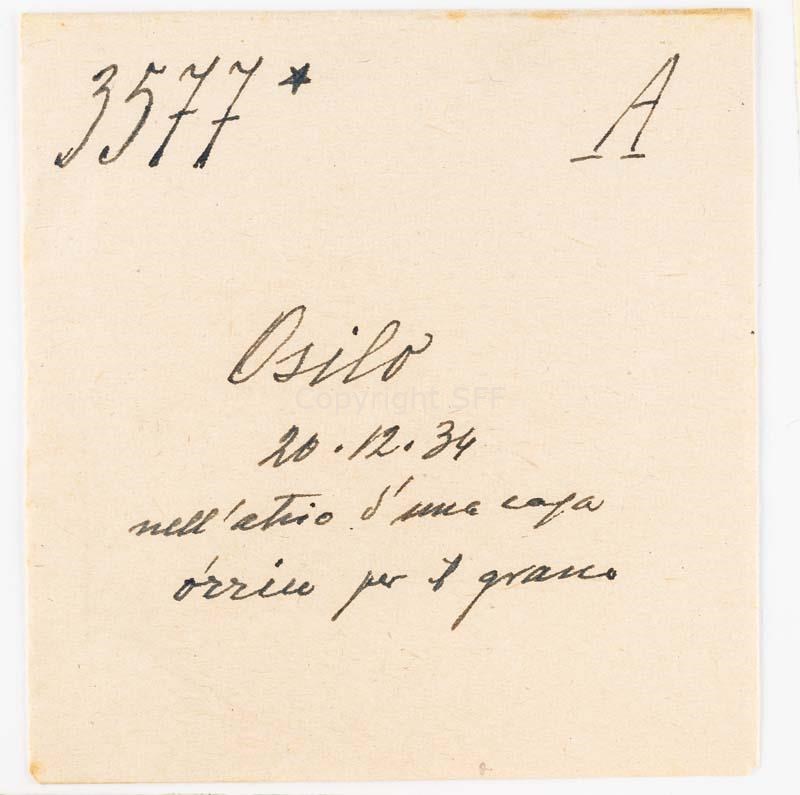 3577* A
Osilo
Copyright SFF
20.12.34
nell'atrio d'una casa
órriu per il grano